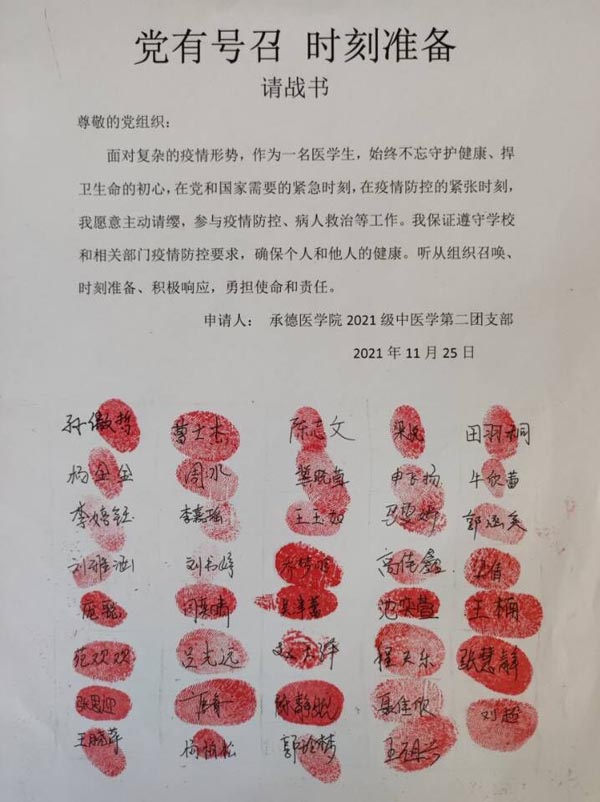 党有号召 时刻准备
请战书
尊敬的党组织：
面对复杂的疫情形势，作为一名医学生，始终不忘守护健康、捍
卫生命的初心，在党和国家需要的紧急时刻，在疫情防控的紧张时刻，
我愿意主动请缨，参与疫情防控、病人救治等工作。我保证遵守学校
和相关部门疫情防控要求，确保个人和他人的健康。听从组织召唤、
时刻准备、积极响应，勇担使命和责任。
申请人： 承德医学院 2021 级中医学第二团支部
2021 年 11 月 25 日
孙傲哲 葛士杰 陈志文 田羽桐
杨金金 周冰 牛欣蕾
李嘉瑶 王玉如
刘雅涵 刘书婷 高伟鑫
庞聪 沈奕萱 王楠
范欢欢 吴光远 程天乐 张慧静
张思迎 刘超
王晓萍 杨怡松